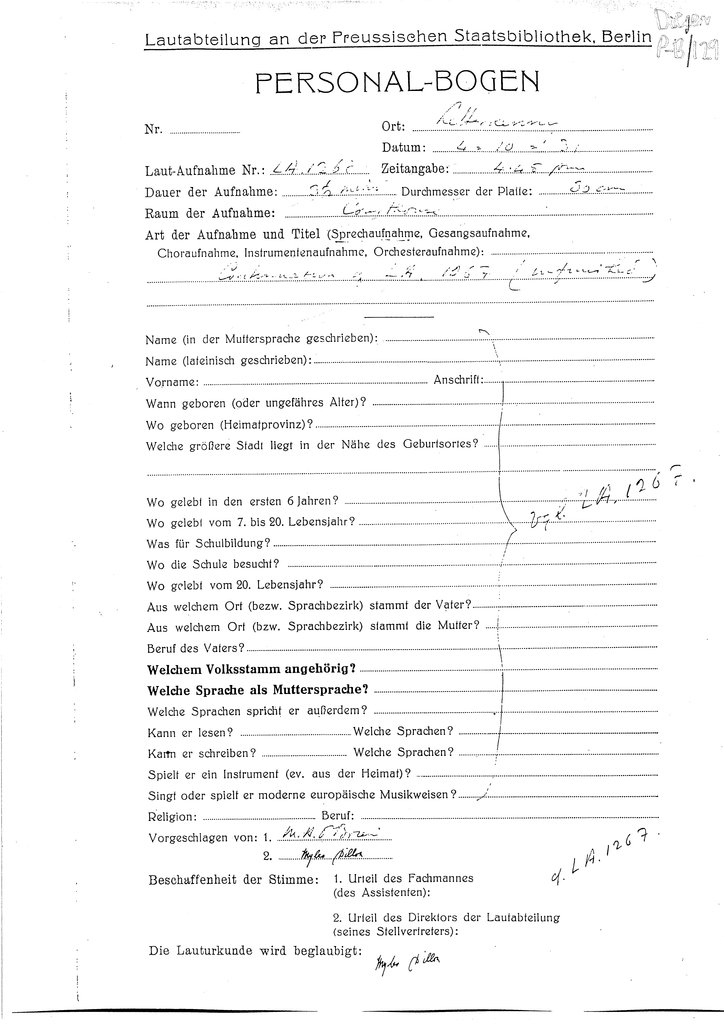 Doegen
P-B/129
Lautabteilung an der Preussischen Staatsbibliothek, Berlin
PERSONAL-BOGEN
Nr.
Ort: Letterkenny
Datum: 4 - 10 - '31
Laut-Aufnahme Nr.: LA.1268 Zeitangabe: 4.45 pm
Dauer der Aufnahme: Durchmesser der Platte: 30 cm
Raum der Aufnahme: Courthouse
Art der Aufnahme und Titel (Sprechaufnahme, Gesangsaufnahme,
Choraufnahme, Instrumentenaufnahme, Orchesteraufnahme):
Continuation of LA. 1267 (unfinished)
Name (in der Muttersprache geschrieben):
Name (lateinisch geschrieben):
Vorname: Anschrift:
Wann geboren (oder ungefähres Alter)?
Wo geboren (Heimatprovinz)?
Welche größere Stadt liegt in der Nähe des Geburtsortes?
Wo gelebt in den ersten 6 Jahren?
vgl. LA. 1267.
Wo gelebt vom 7. bis 20. Lebensjahr?
Was für Schulbildung?
Wo die Schule besucht?
Wo gelebt vom 20. Lebensjahr?
Aus welchem Ort (bezw. Sprachbezirk) stammt der Vater?
Aus welchem Ort (bzw. Sprachbezirk) stammt die Mutter?
Beruf des Vaters?
Welchem Volksstamm angehörig?
Welche Sprache als Muttersprache?
Welche Sprachen spricht er außerdem?
Kann er lesen? Welche Sprachen?
Kann er schreiben? Welche Sprachen?
Spielt er ein Instrument (ev. aus der Heimat)?
Singt oder spielt er moderne europäische Musikweisen?
Religion: Beruf:
Vorgeschlagen von: 1.
2. Myles Dillon
cf. LA. 1267.
Beschaffenheit der Stimme: 1. Urteil des Fachmannes
(des Assistenten):
2. Urteil des Direktors der Lautabteilung
(seines Stellvertreters):
Die Lauturkunde wird beglaubigt: Myles Dillon